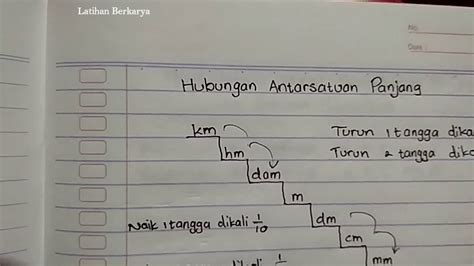 Latihan Berkarya
No:
Date:
Hubungan Antarsatuan Panjang
km
Turun 1 tangga
hm
Turun 2 tangga
dam
m
Naik 1 tangga dikali 1/10
dm
cm
mm